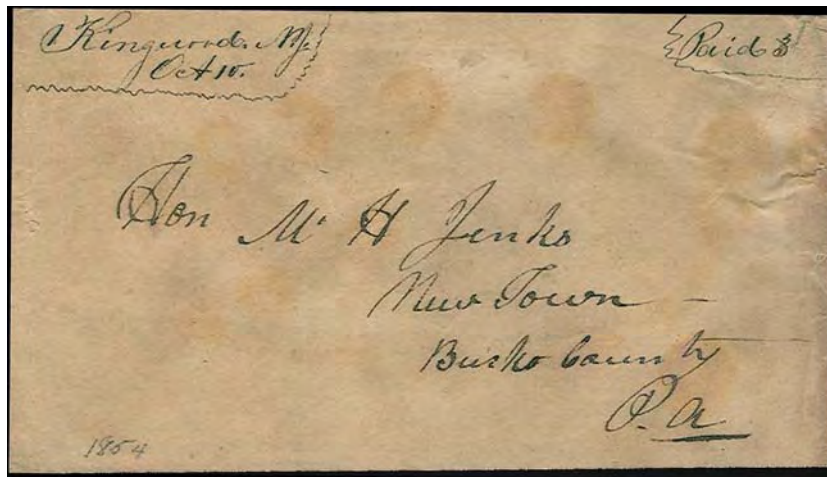 Kingwood. N.J.
Oct 10.
Paid 3
Hon M. H Jenks
New Town
Bucks County
P.a
1854